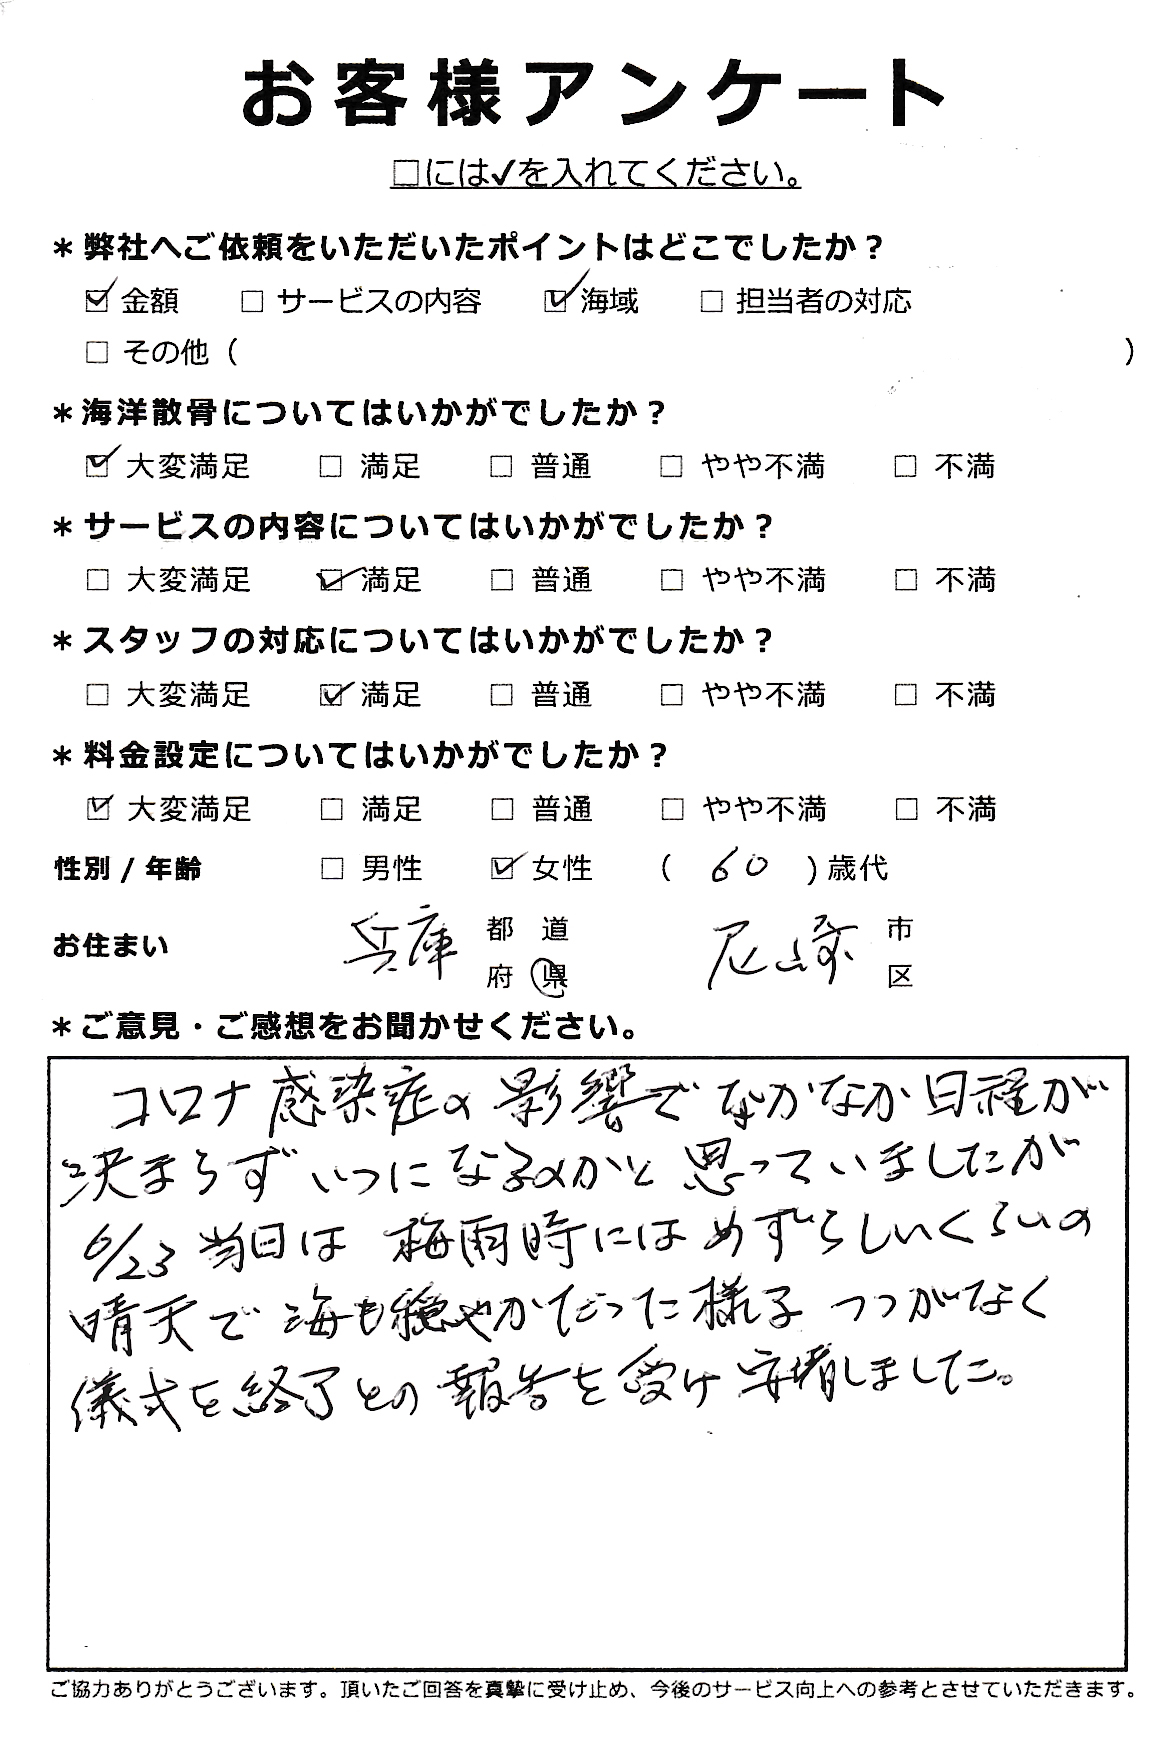 お客様アンケート
□には✓を入れてください。
＊弊社へご依頼をいただいたポイントはどこでしたか？
☑ 金額 □ サービスの内容 ☑ 海域 □ 担当者の対応
□ その他（ ）
＊海洋散骨についてはいかがでしたか？
☑ 大変満足 □ 満足 □ 普通 □ やや不満 □ 不満
＊サービスの内容についてはいかがでしたか？
□ 大変満足 ☑ 満足 □ 普通 □ やや不満 □ 不満
＊スタッフの対応についてはいかがでしたか？
□ 大変満足 ☑ 満足 □ 普通 □ やや不満 □ 不満
＊料金設定についてはいかがでしたか？
☑ 大変満足 □ 満足 □ 普通 □ やや不満 □ 不満
性別 / 年齢 □ 男性 ☑ 女性 （ 60 ）歳代
お住まい 兵庫 都 道 府 県 尼崎 市 区
＊ご意見・ご感想をお聞かせください。
コロナ感染症の影響でなかなか日程が
決まらずいつになるのかと思っていましたが
6/23当日は 梅雨時にはめずらしいくらいの
晴天で海も穏やかだった様子 つつがなく
儀式を終了との報告を受け安堵しました。
ご協力ありがとうございます。頂いたご回答を真摯に受け止め、今後のサービス向上への参考とさせていただきます。